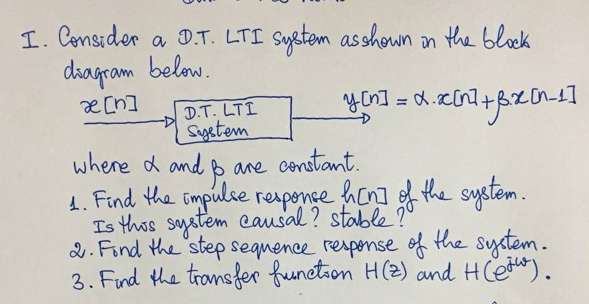 I. Consider a D.T. LTI system as shown in the block
diagram below.
x[n]
D.T. LTI
System
y[n] = α.x[n] + β.x[n-1]
where α and β are constant.
1. Find the impulse response h[n] of the system.
Is this system causal? stable?
2. Find the step sequence response of the system.
3. Find the transfer function H(z) and H(e^jω).